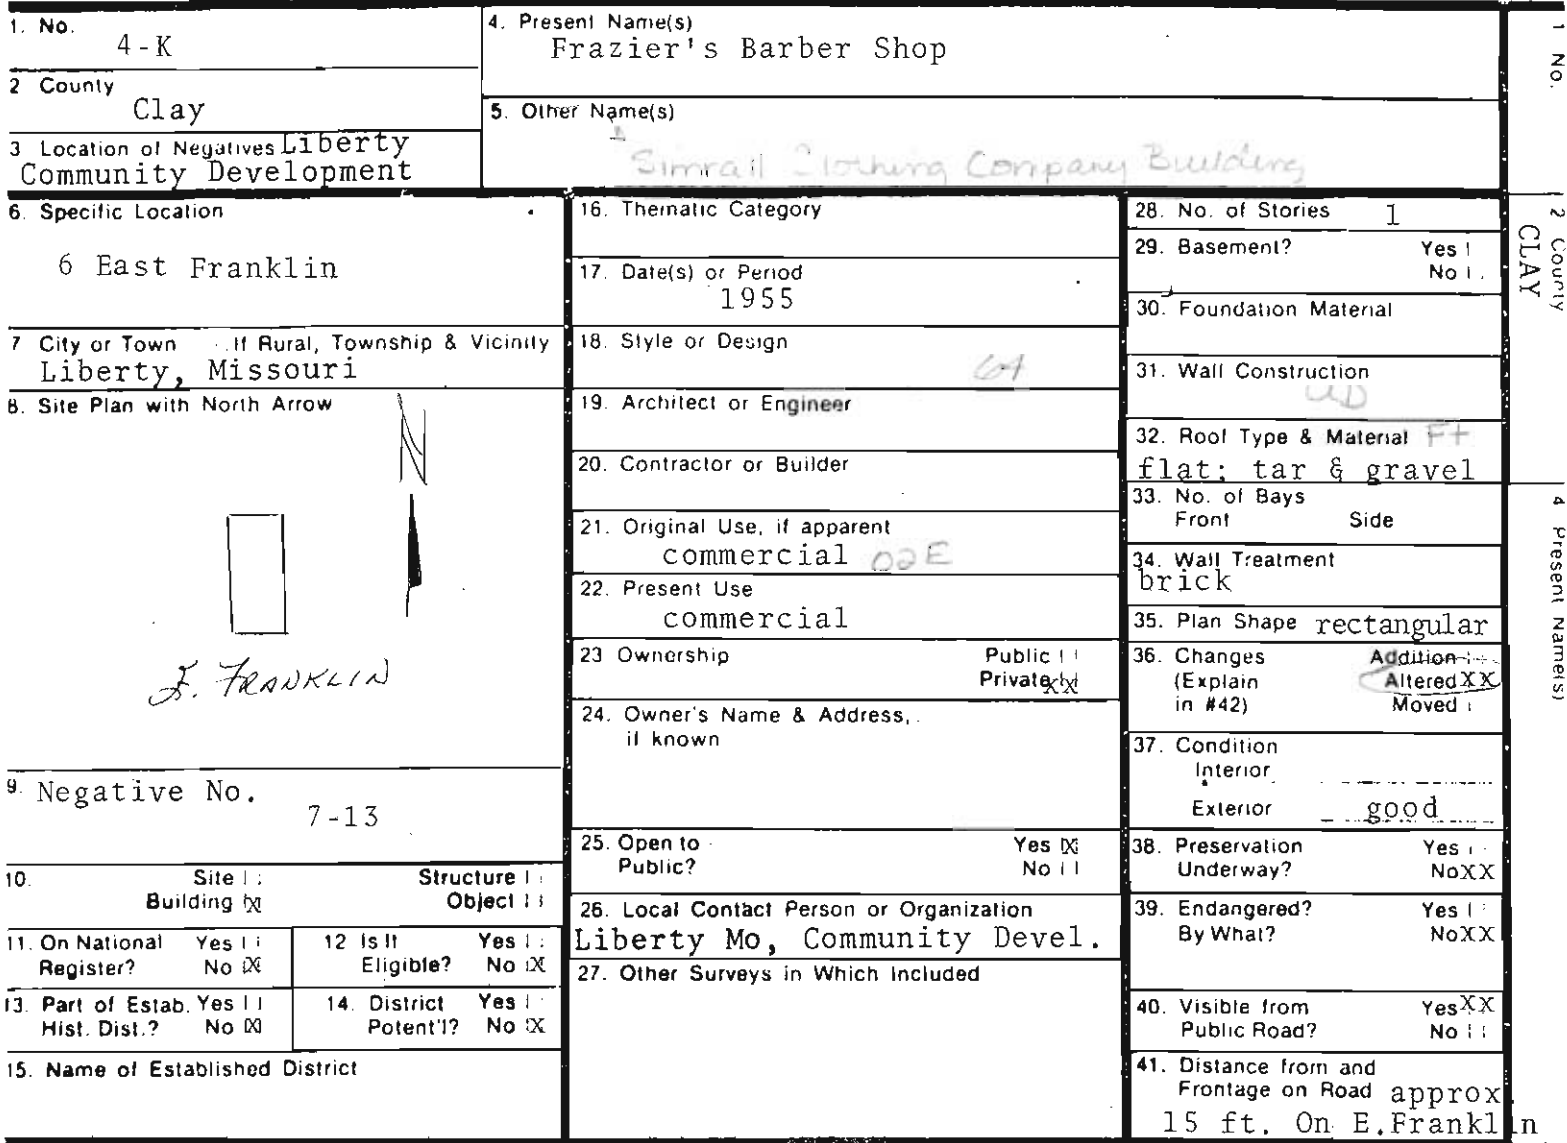 1. No.
4-K
2 County
Clay
3 Location of Negatives Liberty
Community Development
4. Present Name(s)
Frazier's Barber Shop
5. Other Name(s)
Simrall Clothing Company Building
6. Specific Location
6 East Franklin
7 City or Town If Rural, Township & Vicinity
Liberty, Missouri
8. Site Plan with North Arrow
N
E. FRANKLIN
9. Negative No.
7-13
10. Site
Structure
Building X
Object
11. On National Register? Yes
No X
12 Is It Eligible? Yes
No X
13. Part of Estab. Hist. Dist.? Yes
No X
14. District Potent'l? Yes
No X
15. Name of Established District
16. Thematic Category
17. Date(s) or Period
1955
18. Style or Design
64
19. Architect or Engineer
20. Contractor or Builder
21. Original Use, if apparent
commercial 02E
22. Present Use
commercial
23 Ownership Public
Private XX
24. Owner's Name & Address,
if known
25. Open to Yes X
Public? No
26. Local Contact Person or Organization
Liberty Mo, Community Devel.
27. Other Surveys in Which Included
28. No. of Stories 1
29. Basement? Yes
No
30. Foundation Material
31. Wall Construction
UD
32. Roof Type & Material Ft
flat; tar & gravel
33. No. of Bays
Front Side
34. Wall Treatment
brick
35. Plan Shape rectangular
36. Changes Addition
(Explain Altered XX
in #42) Moved
37. Condition
Interior
Exterior good
38. Preservation Yes
Underway? No XX
39. Endangered? Yes
By What? No XX
40. Visible from Yes XX
Public Road? No
41. Distance from and
Frontage on Road approx.
15 ft. On E.Franklin
1 No.
2 County
CLAY
4 Present Name(s)